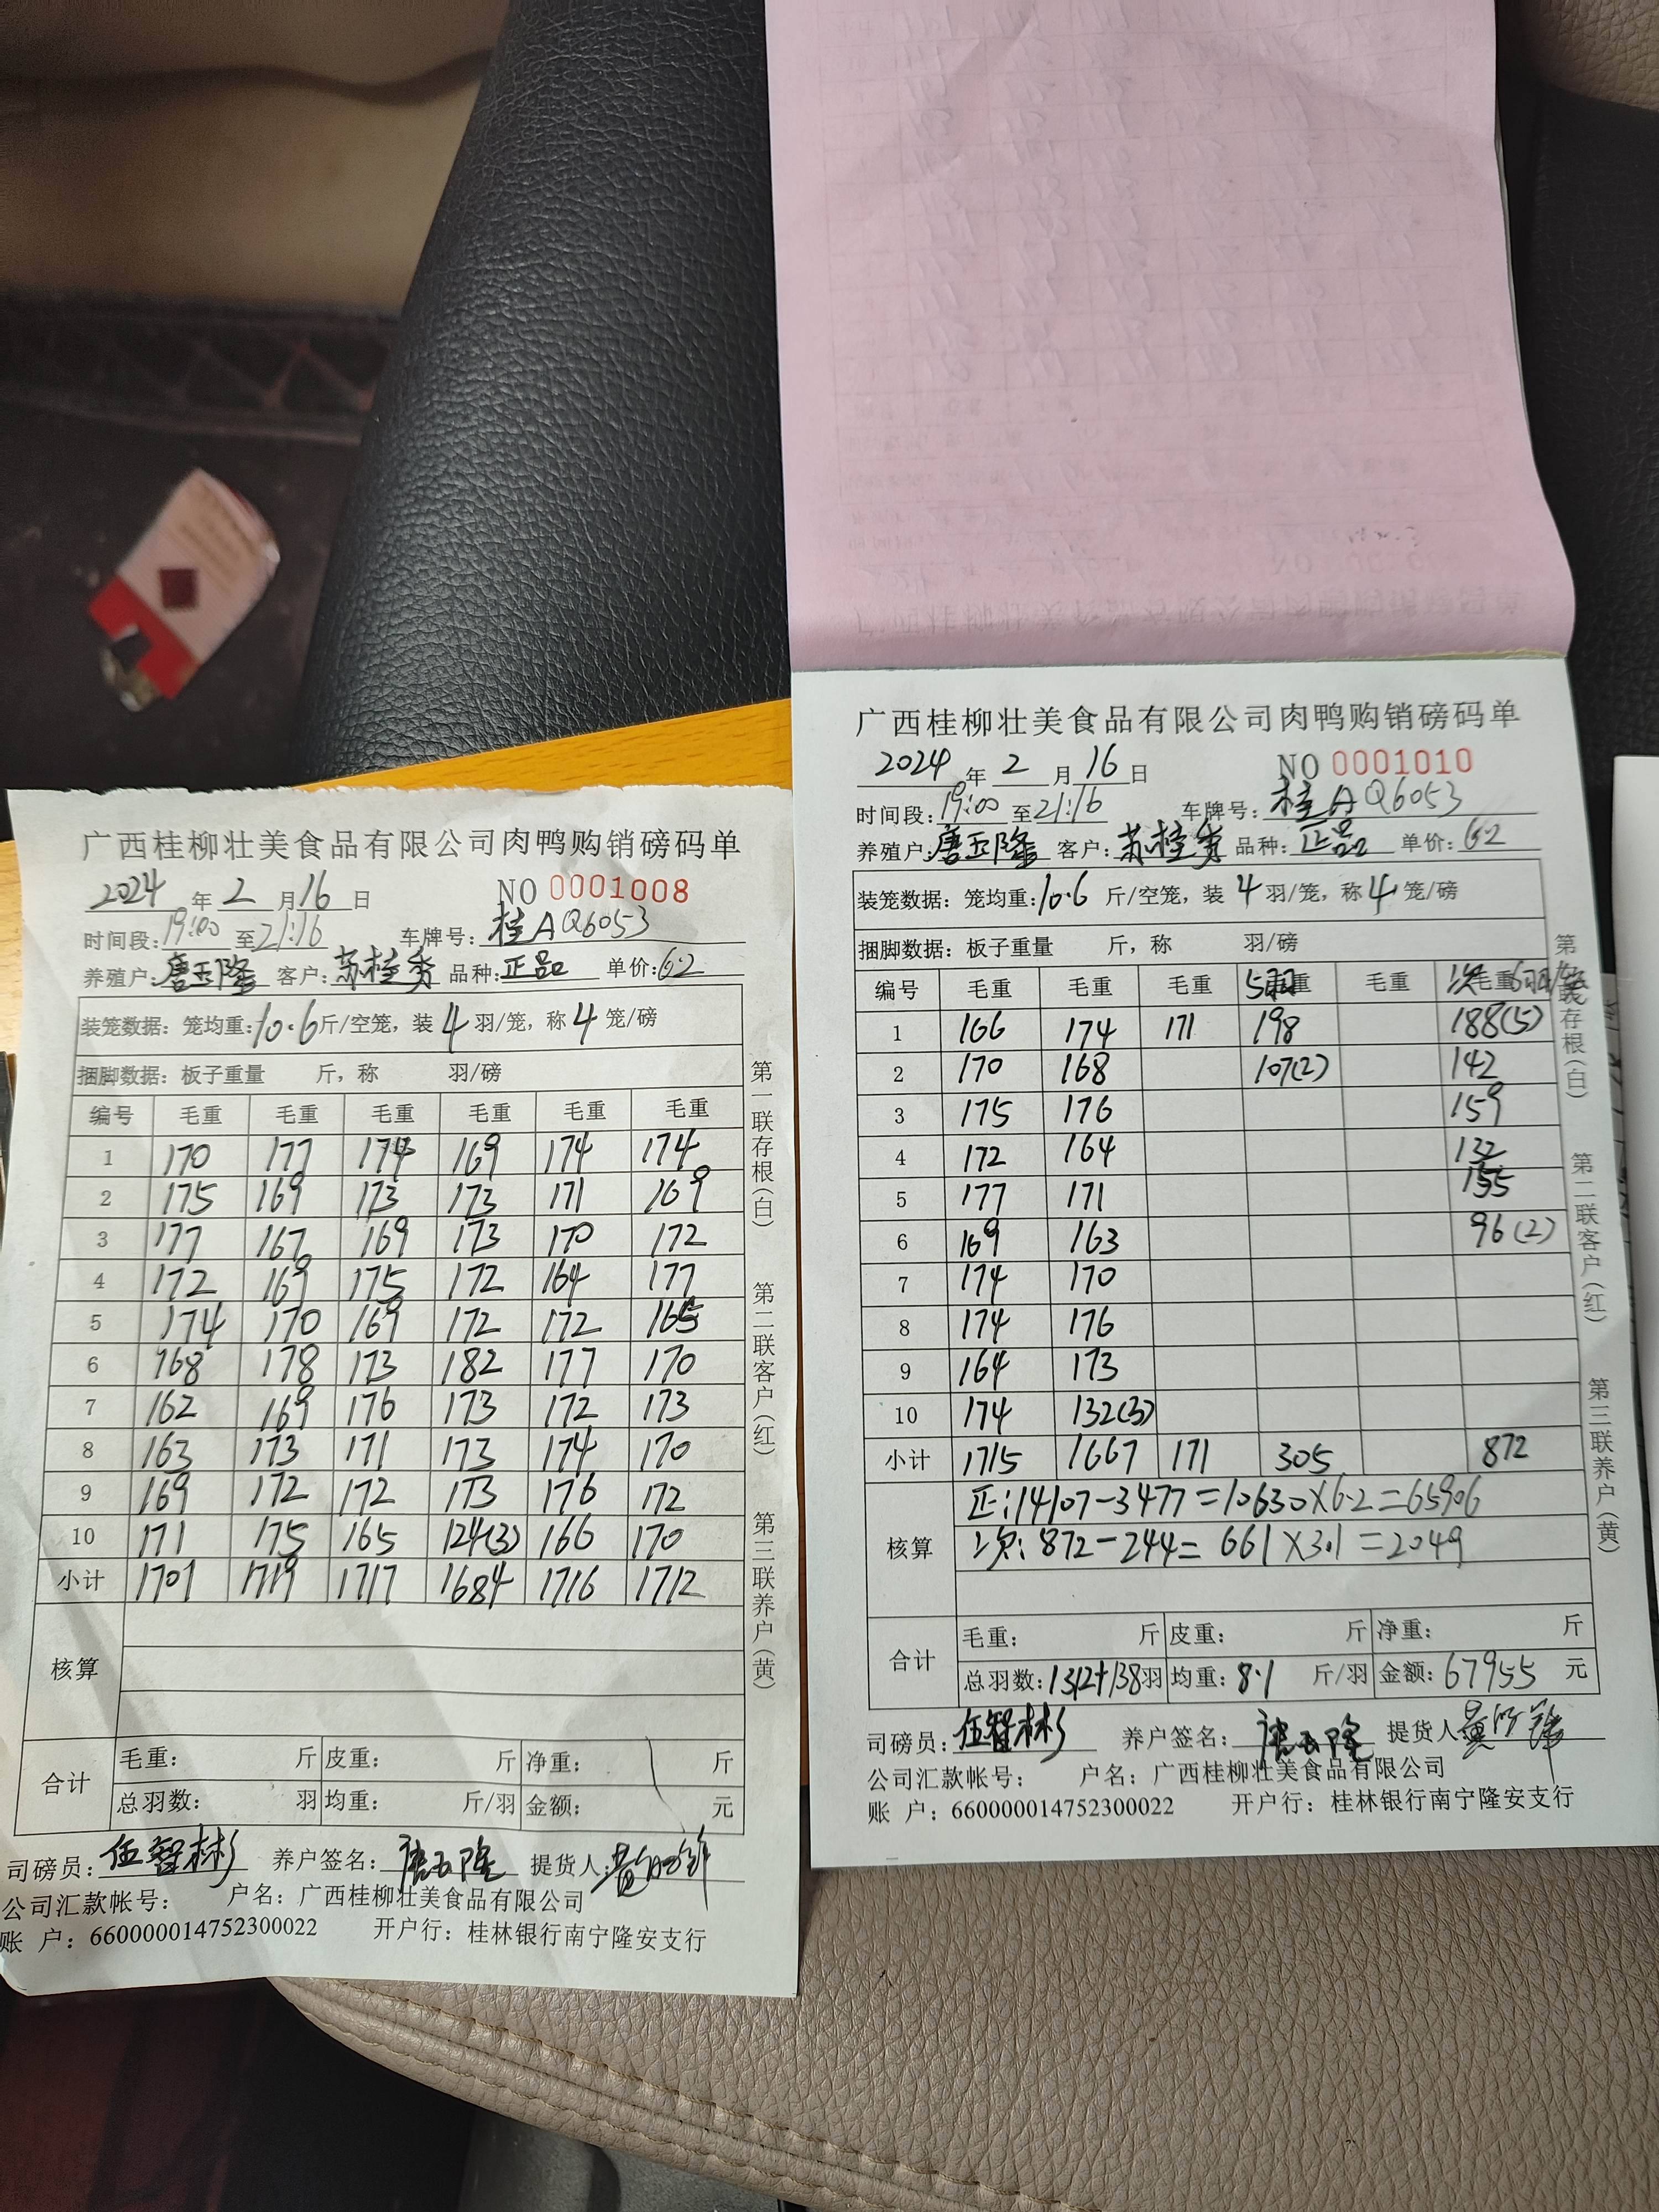 广西桂柳壮美食品有限公司肉鸭购销磅码单
2024年2月16日 NO 0001008
时间段:19:00至21:16 车牌号:桂AQ6053
养殖户:唐玉隆 客户:苏桂秀 品种:正品 单价:6.2
装笼数据:笼均重:10.6斤/空笼,装4羽/笼,称4笼/磅
捆脚数据:板子重量 斤,称 羽/磅
编号 毛重 毛重 毛重 毛重 毛重 毛重
1 170 177 174 169 174 174
2 175 169 173 173 171 169
3 177 167 169 173 170 172
4 172 169 175 172 164 177
5 174 170 169 172 172 165
6 168 178 173 182 177 170
7 162 169 176 173 172 173
8 163 173 171 173 174 170
9 169 172 172 173 176 172
10 171 175 165 124(3) 166 170
小计 1701 1719 1717 1684 1716 1712
核算
合计 毛重: 斤 皮重: 斤 净重: 斤
总羽数: 羽 均重: 斤/羽 金额: 元
司磅员:伍智彬 养户签名:唐玉隆 提货人:
公司汇款帐号: 户名:广西桂柳壮美食品有限公司
账 户:660000014752300022 开户行:桂林银行南宁隆安支行
第一联存根(白) 第二联客户(红) 第三联养户(黄)
广西桂柳壮美食品有限公司肉鸭购销磅码单
2024年2月16日 NO 0001010
时间段:19:00至21:16 车牌号:桂AQ6053
养殖户:唐玉隆 客户:苏桂秀 品种:正品 单价:6.2
装笼数据:笼均重:10.6斤/空笼,装4羽/笼,称4笼/磅
捆脚数据:板子重量 斤,称 羽/磅
编号 毛重 毛重 毛重 5羽毛重 毛重 次毛重6羽/笼
1 166 174 171 198 188(5)
2 170 168 107(2) 142
3 175 176 159
4 172 164 132
5 177 171 155
6 169 163 96(2)
7 174 170
8 174 176
9 164 173
10 174 132(3)
小计 1715 1667 171 305 872
核算 正:14107-3477=10630×6.2=65906
次:872-244=661×3.1=2049
合计 毛重: 斤 皮重: 斤 净重: 斤
总羽数:1312+138羽 均重:8.1斤/羽 金额:67955元
司磅员:伍智彬 养户签名:唐玉隆 提货人
公司汇款帐号: 户名:广西桂柳壮美食品有限公司
账 户:660000014752300022 开户行:桂林银行南宁隆安支行
第一联存根(白) 第二联客户(红) 第三联养户(黄)